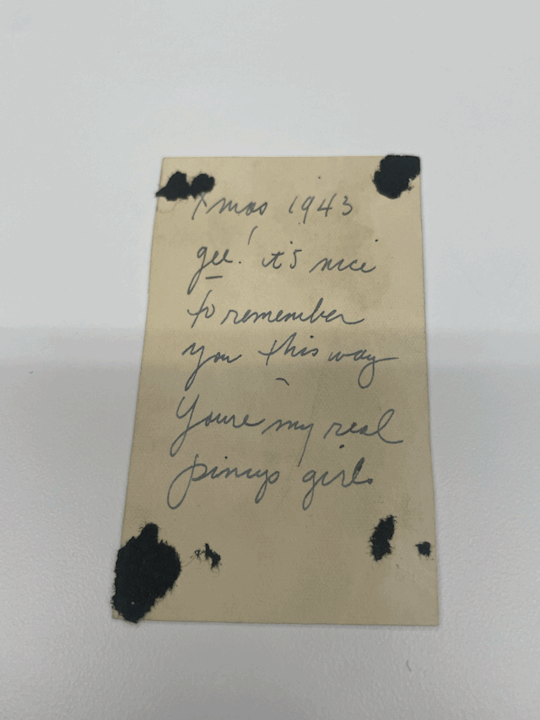 Xmas 1943
gee! it's nice
to remember
you this way
You're my real
pinup girl.